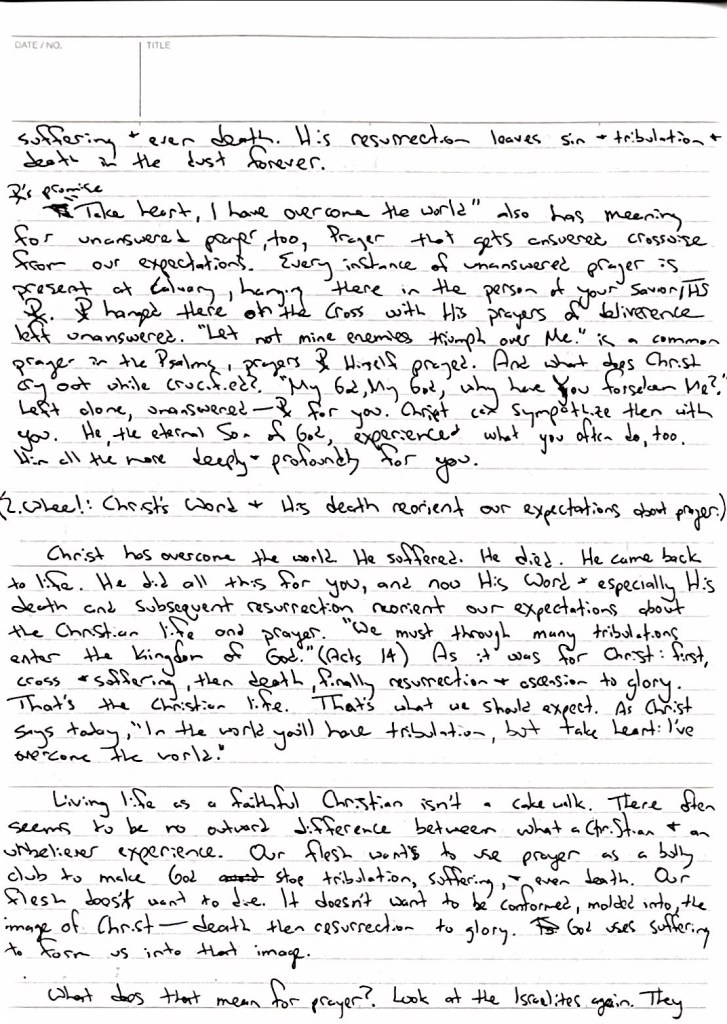 DATE / NO. TITLE
suffering + even death. His resurrection leaves sin + tribulation +
death in the dust forever.
's promise
"Take heart, I have overcome the world" also has meaning
for unanswered prayer, too, Prayer that gets answered crosswise
from our expectations. Every instance of unanswered prayer is
present at Calvary, hanging there in the person of your Savior, IHS
hanged there on the Cross with His prayers of deliverence
left unanswered. "Let not mine enemies triumph over Me." is a common
prayer in the Psalms, prayers Himself prayed. And what does Christ
cry out while crucified? "My God, My God, why have You forsaken Me?"
Left alone, unanswered — for you. Christ can sympathize then with
you. He, the eternal Son of God, experienced what you often do, too.
Him all the more deeply + profoundly for you.
(2. Whee!: Christ's Word + His death reorient our expectations about prayer.)
Christ has overcome the world. He suffered. He died. He came back
to life. He did all this for you, and now His Word + especially His
death and subsequent resurrection reorient our expectations about
the Christian life and prayer. "We must through many tribulations
enter the kingdom of God." (Acts 14) As it was for Christ: first,
cross + suffering, then death, finally resurrection + ascension to glory.
That's the Christian life. That's what we should expect. As Christ
says today, "In the world you'll have tribulation, but take heart: I've
overcome the world."
Living life as a faithful Christian isn't a cake walk. There often
seems to be no outward difference between what a Christian + an
unbeliever experience. Our flesh wants to use prayer as a billy
club to make God stop tribulation, suffering, + even death. Our
flesh doesn't want to die. It doesn't want to be conformed, molded into, the
image of Christ — death then resurrection to glory. God uses suffering
to form us into that image.
What does that mean for prayer? Look at the Israelites again. They